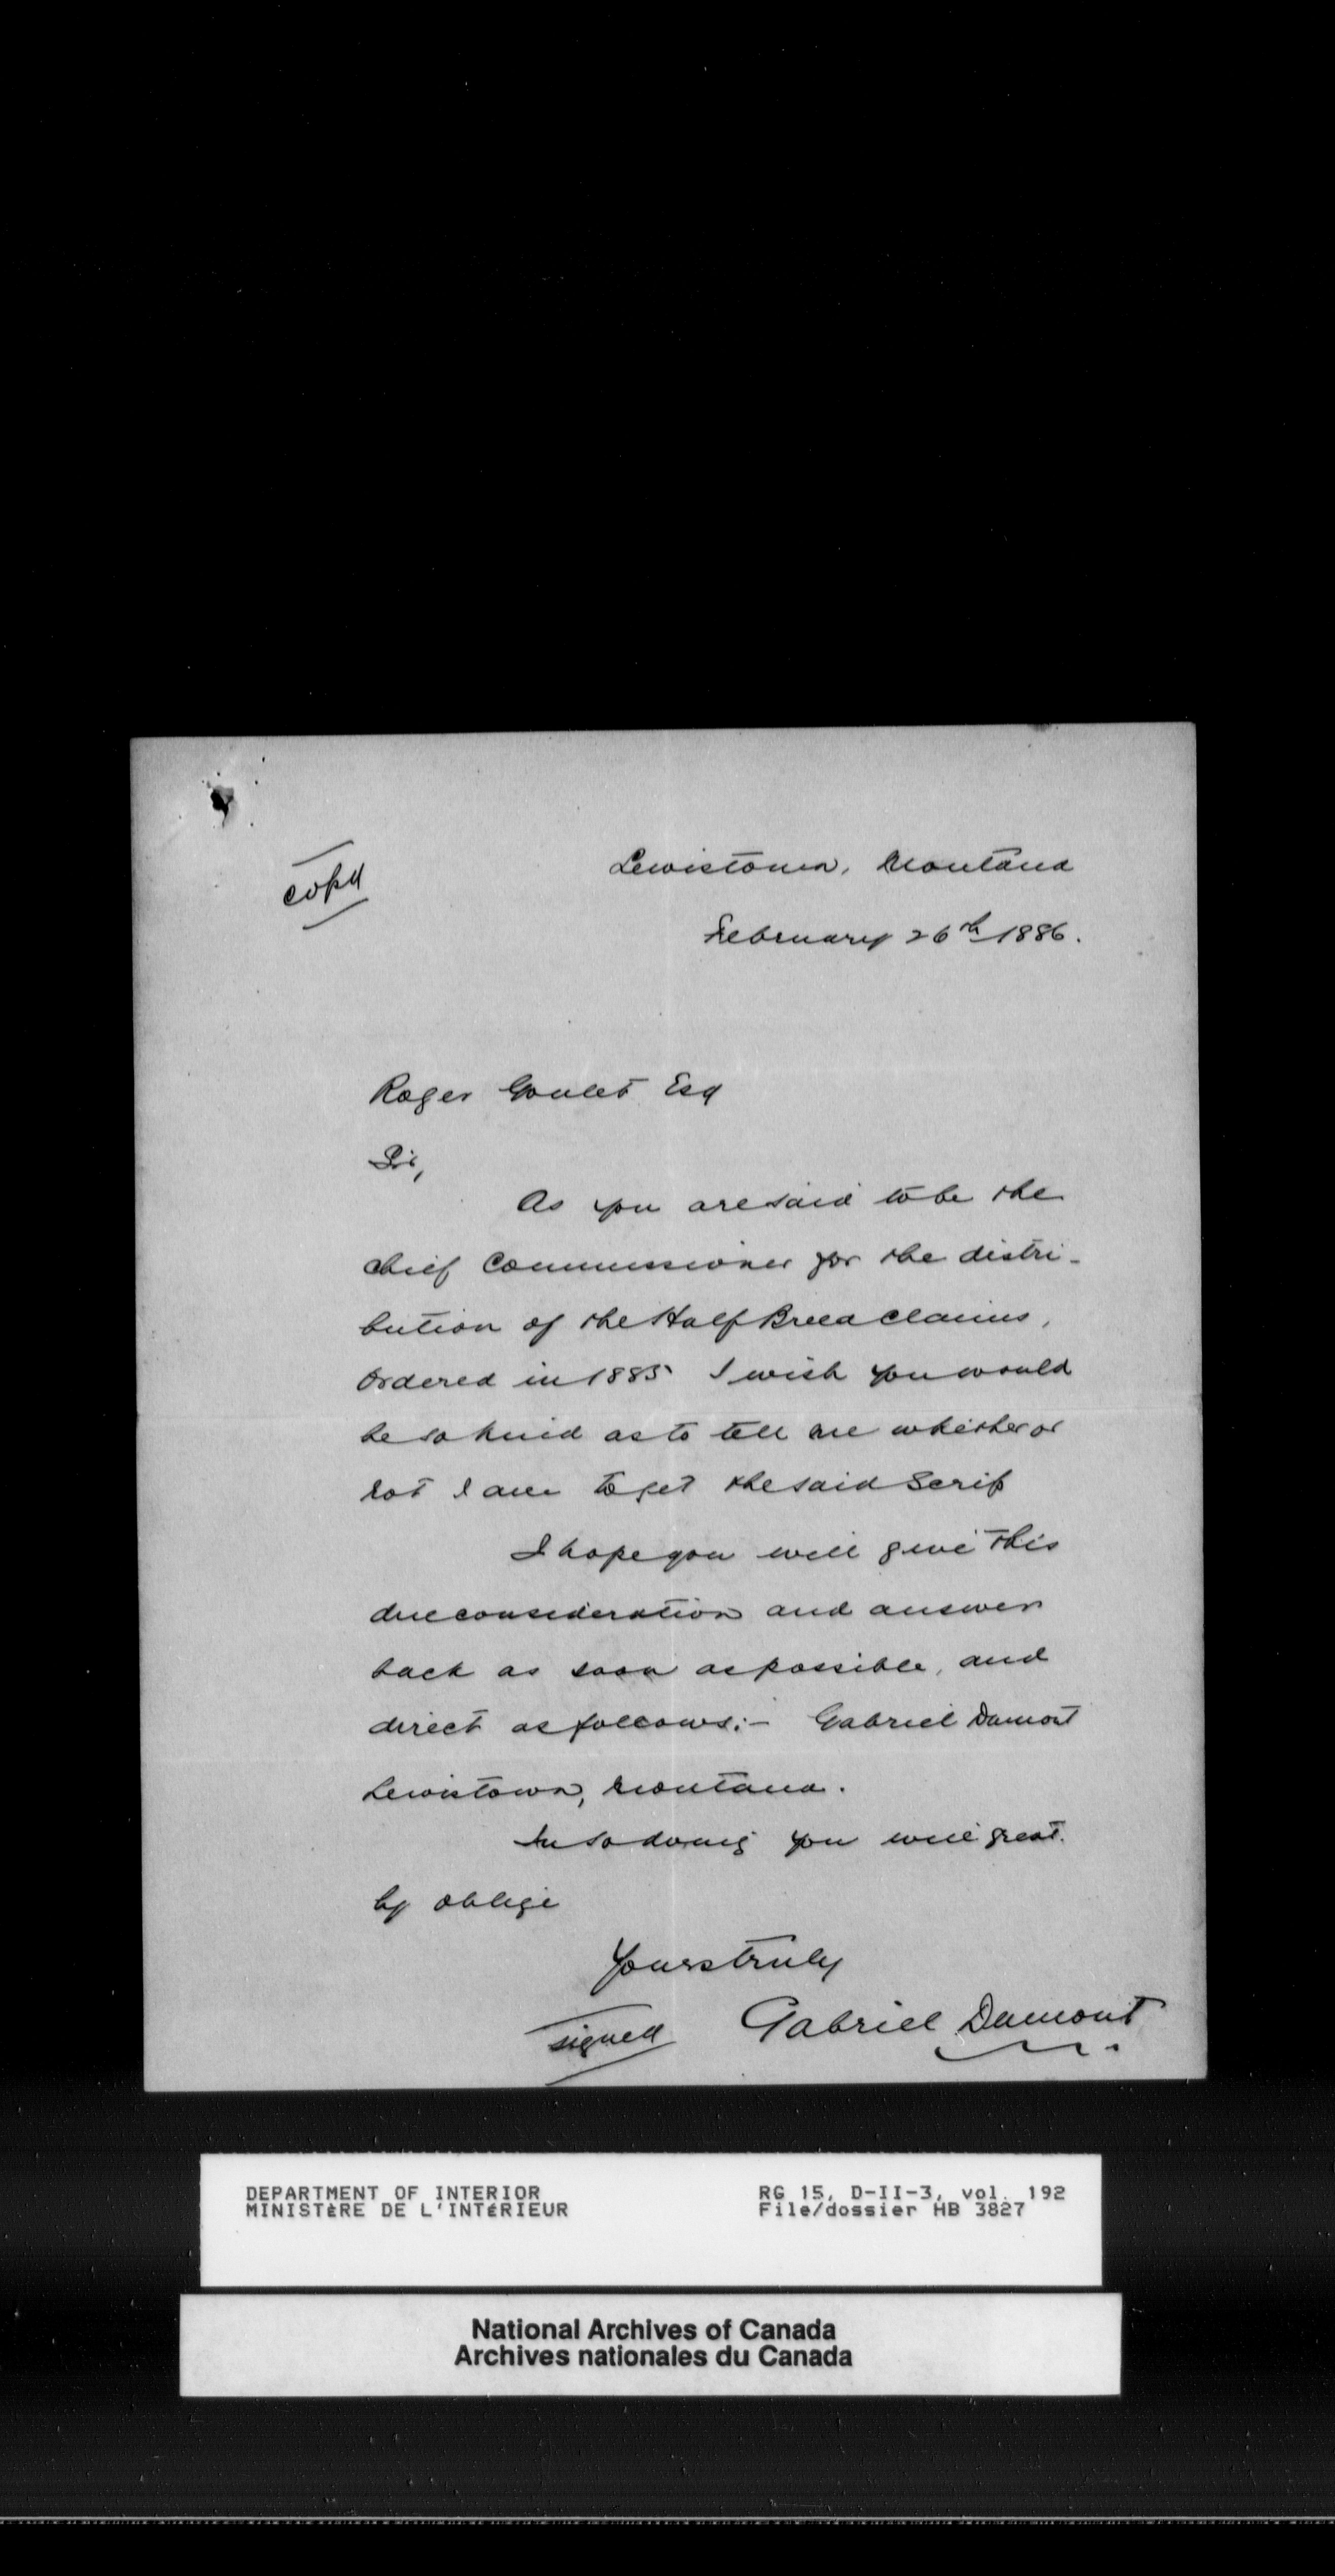 copy
Lewistown, Montana
February 26th 1886.
Roger Goulet Esq
Sir,
As you are said to be the
chief Commissioner for the distri-
bution of the Half Breed claims,
ordered in 1885 I wish you would
be so kind as to tell me whether or
not I am to get the said Scrip
I hope you will give this
due consideration and answer
back as soon as possible, and
direct as follows:- Gabriel Dumont
Lewistown, Montana.
In so doing you will great-
ly oblige
Yours truly
signed Gabriel Dumont
DEPARTMENT OF INTERIOR
MINISTÈRE DE L'INTÉRIEUR
RG 15, D-II-3, vol. 192
File/dossier HB 3827
National Archives of Canada
Archives nationales du Canada